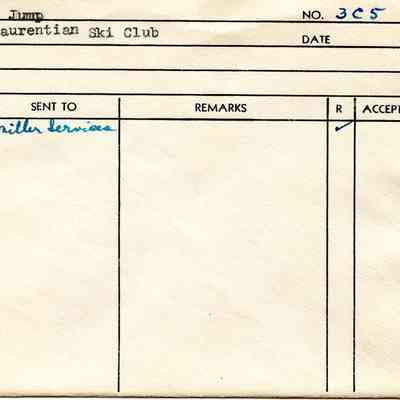 Jump NO. 3C5
aurentian Ski Club
DATE
SENT TO REMARKS R ACCEP
Miller Services ✓